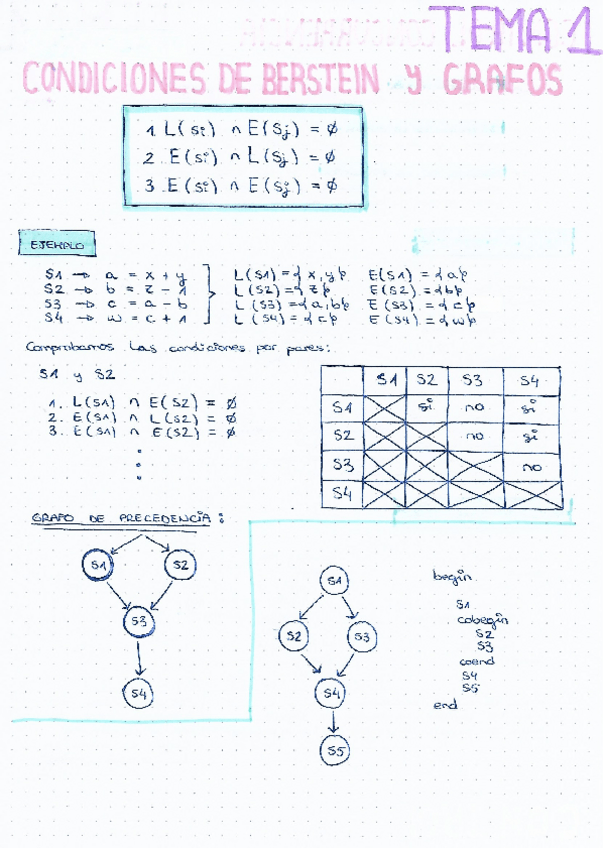 TEMA 1
CONDICIONES DE BERSTEIN Y GRAFOS
1. L(Si) ∩ E(Sj) = ∅
2. E(Si) ∩ L(Sj) = ∅
3. E(Si) ∩ E(Sj) = ∅
EJEMPLO
S1 → a = x + y } L(S1) = {x, y} E(S1) = {a}
S2 → b = z - 1 L(S2) = {z} E(S2) = {b}
S3 → c = a - b L(S3) = {a, b} E(S3) = {c}
S4 → w = c + 1 L(S4) = {c} E(S4) = {w}
Comprobamos las condiciones por pares:
S1 y S2
1. L(S1) ∩ E(S2) = ∅
2. E(S1) ∩ L(S2) = ∅
3. E(S1) ∩ E(S2) = ∅
S1 S2 S3 S4
S1 si no si
S2 no si
S3 no
S4
GRAFO DE PRECEDENCIA:
S1 S2
S3
S4
S1
S2 S3
S4
S5
begin
S1
cobegin
S2
S3
coend
S4
S5
end